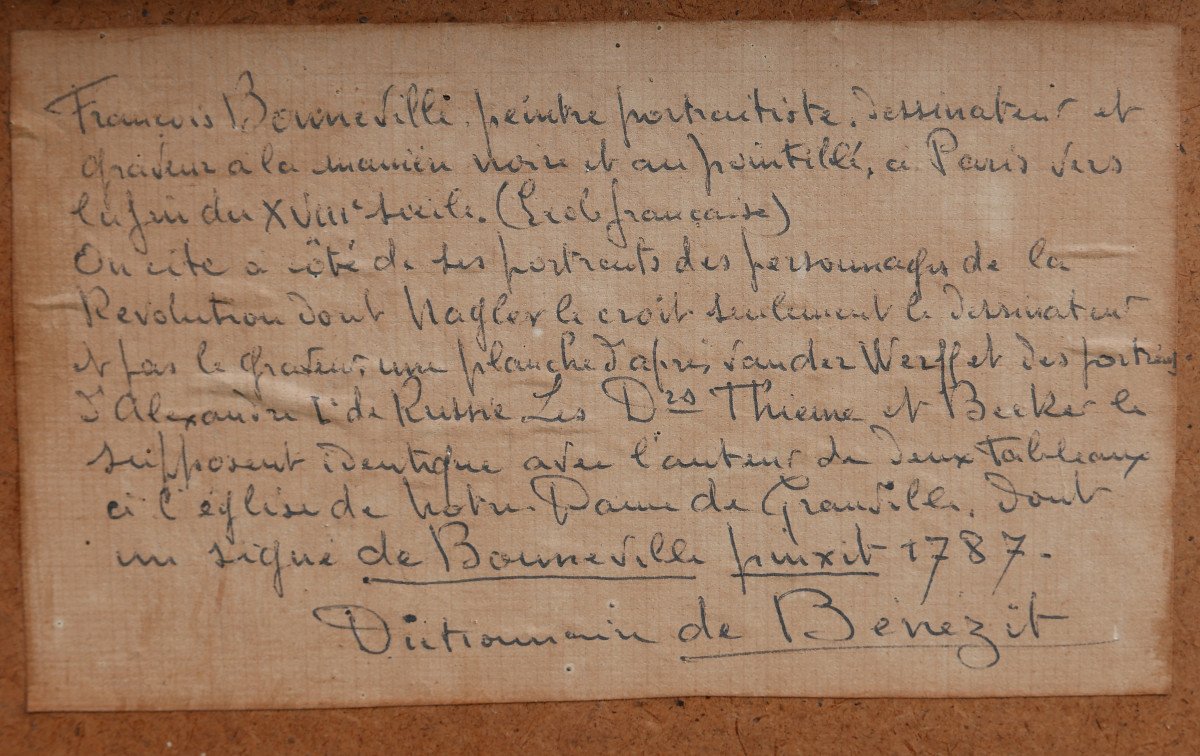 François Bonneville, peintre portraitiste, dessinateur et
graveur à la manière noire et au pointillé, à Paris vers
la fin du XVIIIe siècle. (Ecole française)
On cite à côté de ses portraits des personnages de la
Révolution dont Nagler le croit seulement le dessinateur
et pas le graveur, une planche d'après Van der Werff et des portraits
d'Alexandre 1er de Russie. Les Drs Thieme et Becker le
supposent identique avec l'auteur de deux tableaux
à l'église de Notre Dame de Granville, dont
un signé de Bonneville pinxit 1787.
Dictionnaire de Bénézit